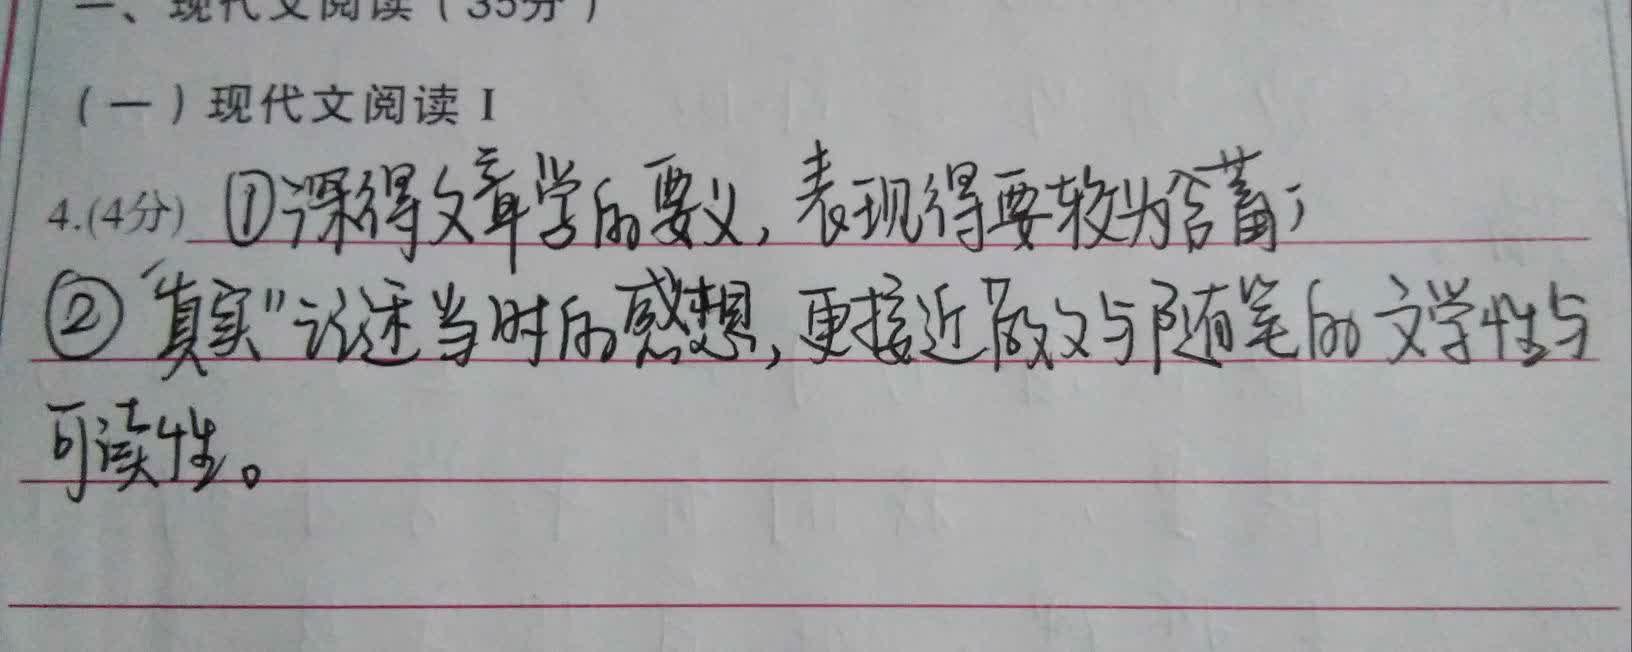 一、现代文阅读（35分）
（一）现代文阅读 I
4.(4分) ①深得文章学的要义，表现得要较为含蓄；
②“真实”记述当时的感想，更接近散文与随笔的文学性与
可读性。